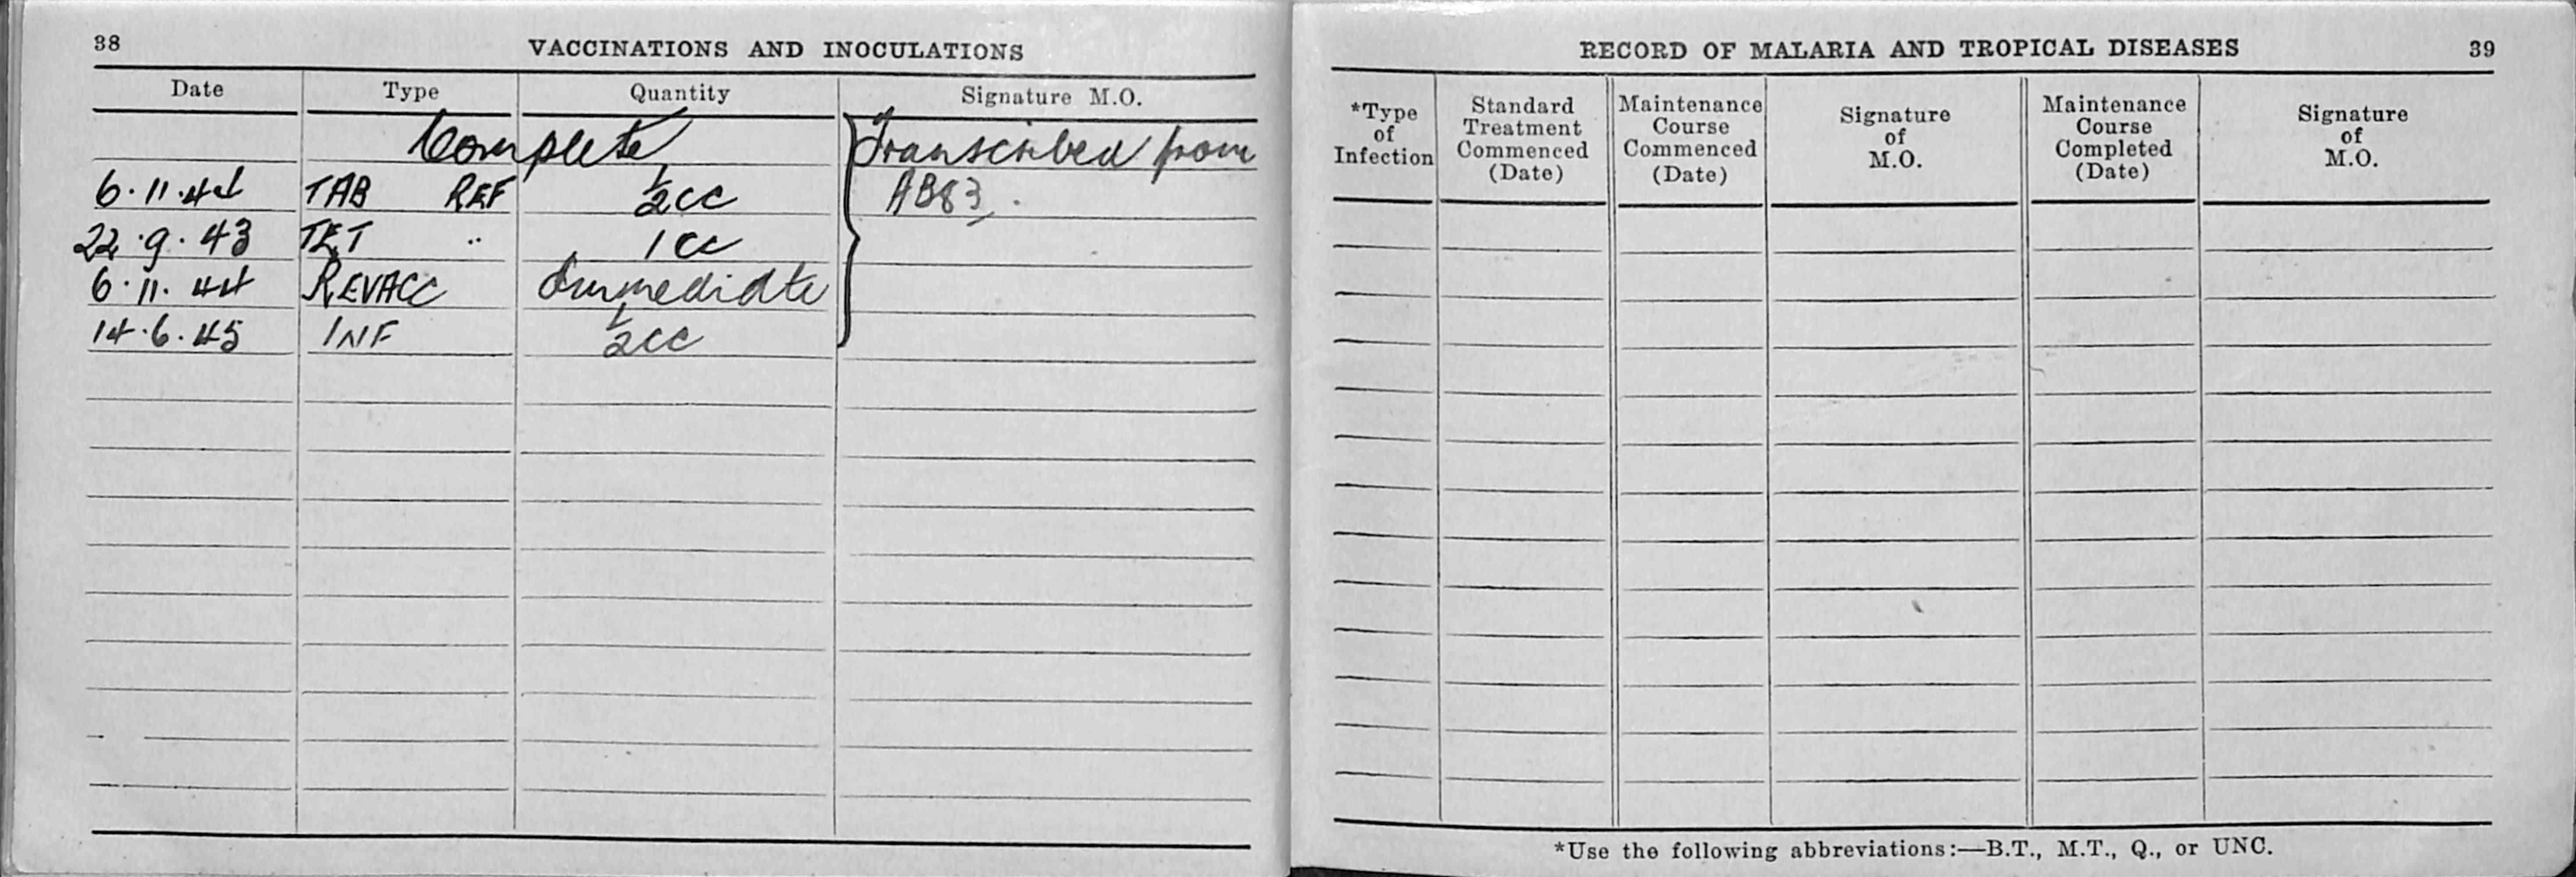 38
VACCINATIONS AND INOCULATIONS
Date Type Quantity Signature M.O.
Complete Transcribed from
6.11.44 TAB REF ½cc AB83.
22.9.43 TET " 1cc
6.11.44 REVACC Immediate
14.6.45 INF ½cc
RECORD OF MALARIA AND TROPICAL DISEASES
39
*Type
of
Infection
Standard
Treatment
Commenced
(Date)
Maintenance
Course
Commenced
(Date)
Signature
of
M.O.
Maintenance
Course
Completed
(Date)
Signature
of
M.O.
*Use the following abbreviations:—B.T., M.T., Q., or UNC.